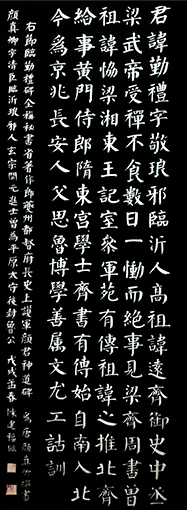 君諱勤禮字敬琅邪臨沂人高祖諱遠齊御史中丞
梁武帝受禪不食數日一慟而絕事見梁齊周書曾
祖諱恊梁湘東王記室參軍苑有傳祖諱之推北齊
給事黃門侍郎隋東宮學士齊書有傳始自南入北
今為京兆長安人父思魯博學善属文尤工詁訓
右節臨勤禮碑全稱秘書省著作郎夔州都督府長史上護軍顏君神道碑 為唐顏真卿撰書
顏真卿字清臣臨沂琅邪人玄宗開元進士曾為平原太守後封魯公 戊戌孟春 陳建